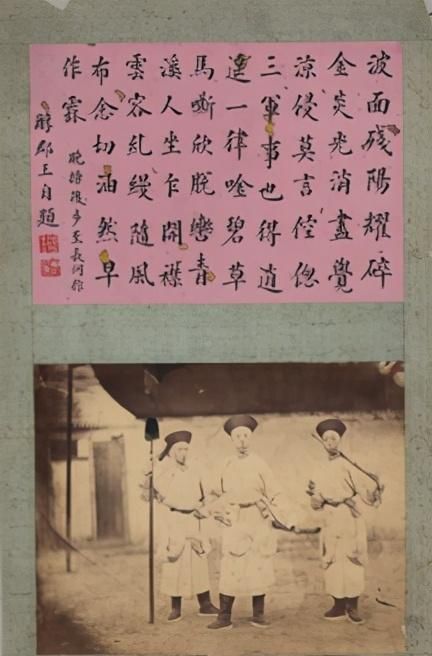 波面殘陽耀碎
金炎光消盡覺
涼侵莫言倥傯
三軍事也得逍
遙一律唫碧草
馬嘶欣脫轡青
溪人坐乍開襟
雲容乱縵隨風
布念切油然早
作霖
晚操後步至長河作
醇郡王自題